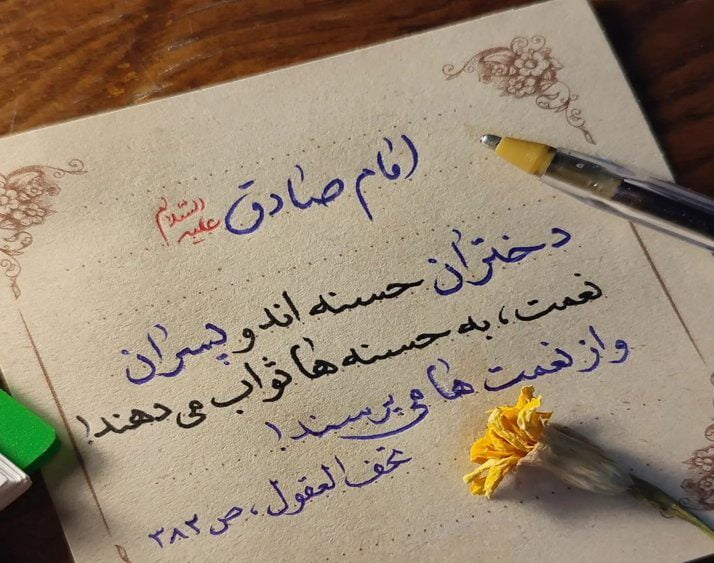 امام صادق علیه السلام
دختران حسنه اند و پسران
نعمت، به حسنه ها ثواب می دهند!
و از نعمت ها می پرسند!
تحف العقول، ص ۳۸۲